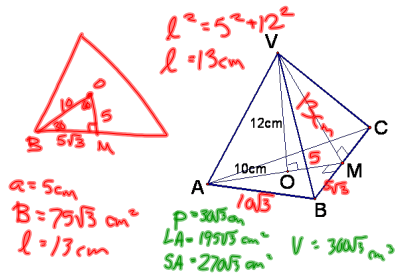 l² = 5² + 12²
l = 13cm
V
O
10
60
5
30
B
5√3
M
12cm
13cm
C
10cm
5
M
A
O
5√3
B
10√3
a = 5cm
B = 75√3 cm²
l = 13 cm
P = 30√3 cm
LA = 195√3 cm²
SA = 270√3 cm²
V = 300√3 cm³